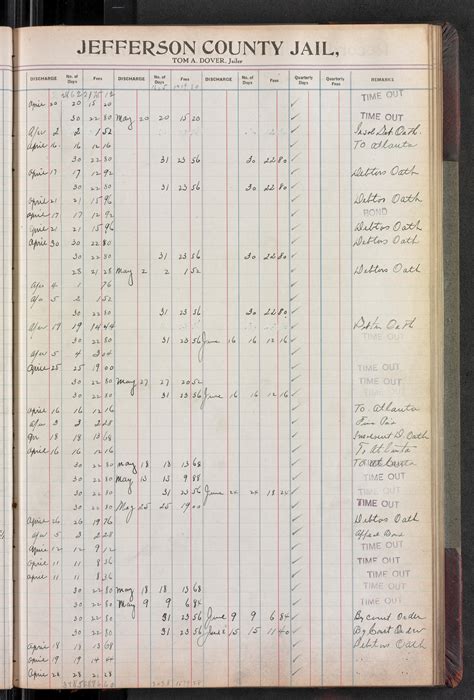 JEFFERSON COUNTY JAIL,
TOM A. DOVER, Jailer
DISCHARGE No. of Days Fees DISCHARGE No. of Days Fees DISCHARGE No. of Days Fees Quarterly Days Quarterly Fees REMARKS
April 20 20 15 20 TIME OUT
30 22 80 May 20 20 15 20 TIME OUT
Apr 2 2 1 52 Insol Deb Oath.
April 16 16 12 16 To Atlanta
30 22 80 31 23 56 30 22 80
April 17 17 12 92 Debtors Oath
30 22 80 31 23 56 30 22 80
April 21 21 15 96 Debtors Oath
April 17 17 12 92 BOND
April 21 21 15 96 Debtors Oath
April 30 30 22 80 Debtors Oath
30 22 80 31 23 56 30 22 80
28 21 28 May 2 2 1 52 Debtors Oath
Apr 1 1 76
Apr 2 1 52
30 22 80 31 23 56 30 22 80
Apr 19 19 14 44 Debtors Oath
30 22 80 31 23 56 June 16 16 12 16 TIME OUT
Apr 5 4 3 04
April 25 25 19 00 TIME OUT
30 22 80 May 27 27 20 52 TIME OUT
30 22 80 31 23 56 June 16 16 12 16 TIME OUT
April 16 16 12 16 To Atlanta
Apr 3 3 2 28
Apr 18 18 13 68 Insolvent D. Oath
April 16 16 12 16 To Atlanta
30 22 80 May 18 18 13 68 To Atlanta
30 22 80 May 13 13 9 88 TIME OUT
30 22 80 31 23 56 June 24 24 18 24 TIME OUT
30 22 80 May 25 25 19 00 TIME OUT
April 26 26 19 76 Debtors Oath
Apr 3 2 28 Bond
April 12 12 9 12 TIME OUT
April 11 11 8 36 TIME OUT
April 11 11 8 36 TIME OUT
30 22 80 May 18 18 13 68 TIME OUT
30 22 80 May 9 9 6 84 TIME OUT
30 22 80 31 23 56 June 9 9 6 84 By Court Order
30 22 80 31 23 56 June 15 15 11 40 By Court Order
April 18 18 13 68 Debtors Oath
April 19 19 14 44
April 28 28 21 28